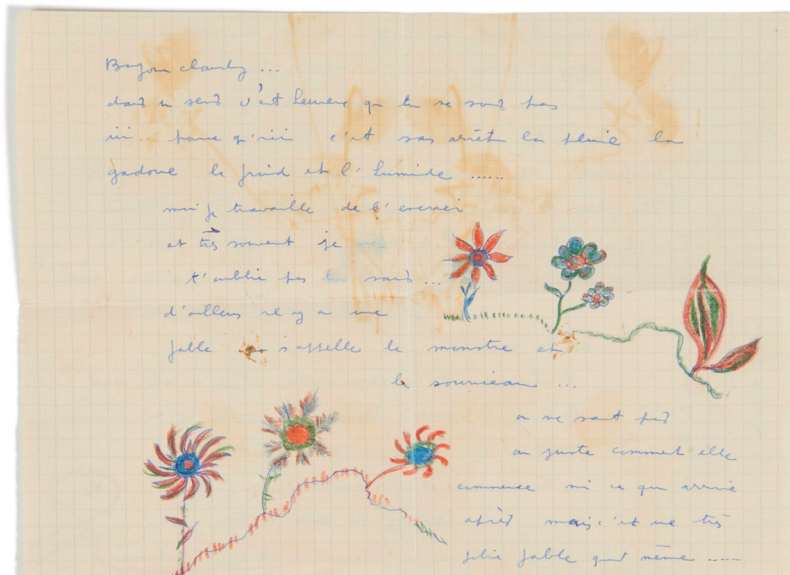 Bonjour
dans un sens c'est heureux que tu ne sois pas
ici.. parce qu'ici c'est sans arrêt la pluie la
gadoue le froid et l'humide ......
moi je travaille de
et très souvent je
t'oublie pas tu sais...
d'ailleurs il y a une
fable qui s'appelle le monstre et
le souriceau ...
on ne sait pas
au juste comment elle
commence ni ce qui arrive
après mais c'est une très
jolie fable quand même .....